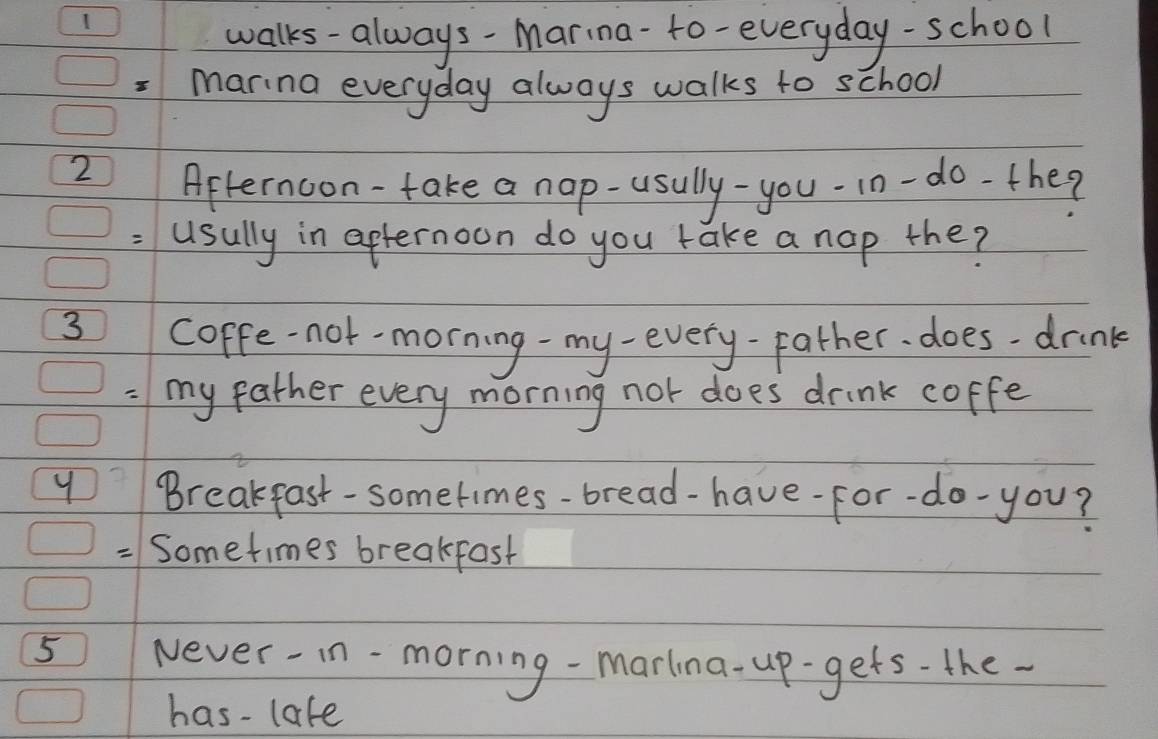 1 walks - always - Marina - to - everyday - school
= Marina everyday always walks to school
2 Afternoon - take a nap - usully - you - in - do - the?
= usully in afternoon do you take a nap the?
3 Coffe - not - morning - my - every - father - does - drink
= my father every morning not does drink coffe
4 Breakfast - sometimes - bread - have - for - do - you?
= Sometimes breakfast
5 Never - in - morning - marlina - up - gets - the -
has - late